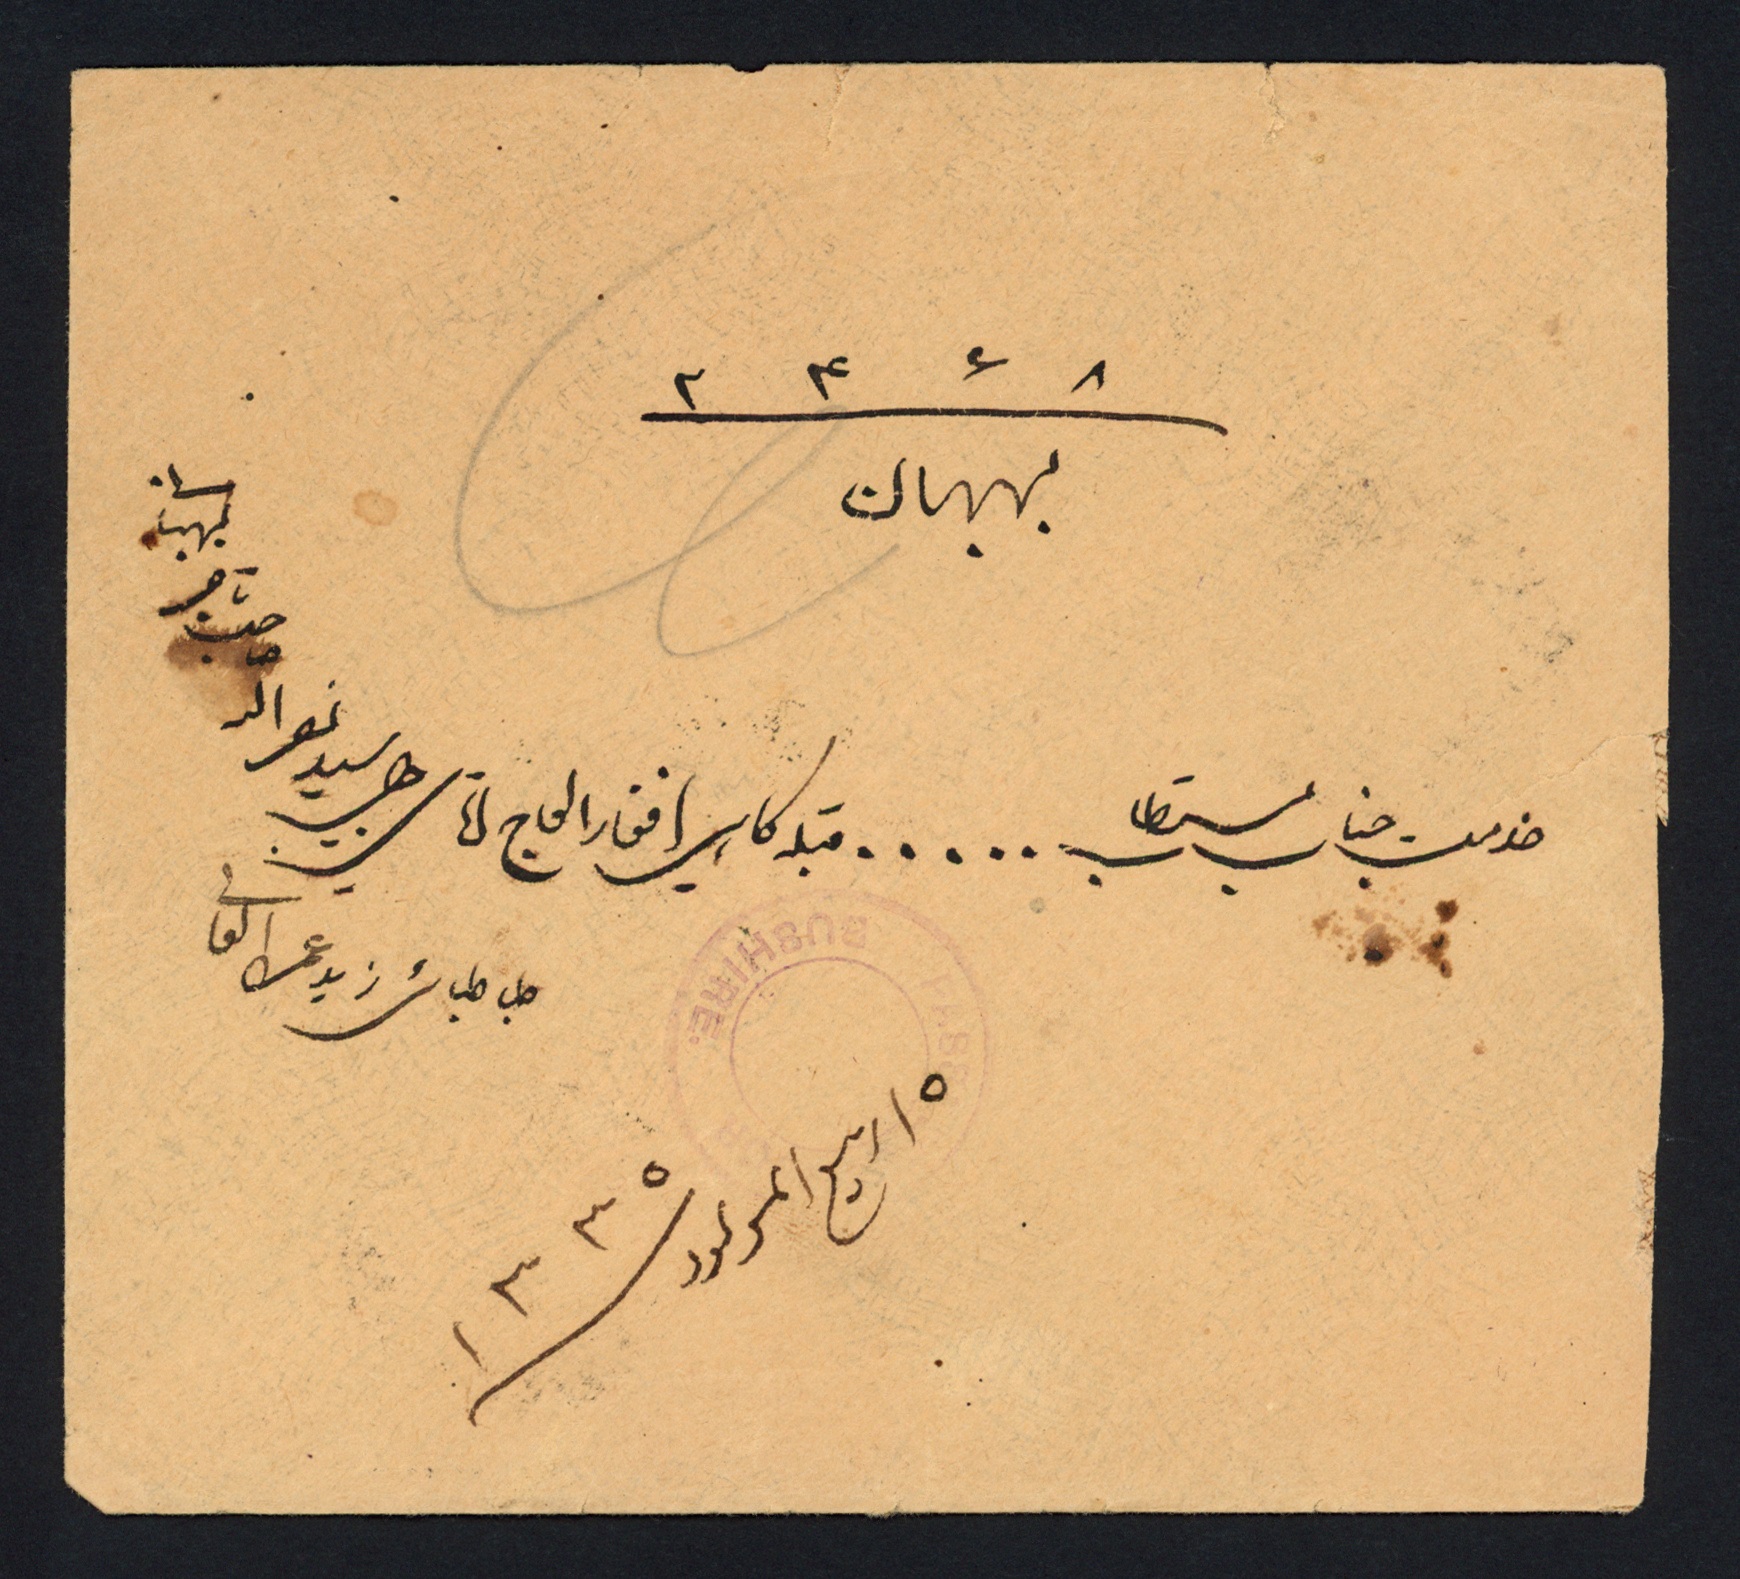 ۲۴۶۸
بهبهان
خدمت جناب مستطاب ...... قبله گاهی افتخار الحاج آقای حاجی سید نصرالله صاحب تاجر بهبهانی
طباطبائی زید عمره العالی
۱۵ ربیع المولود ۱۳۳۵
BUSHIRE.